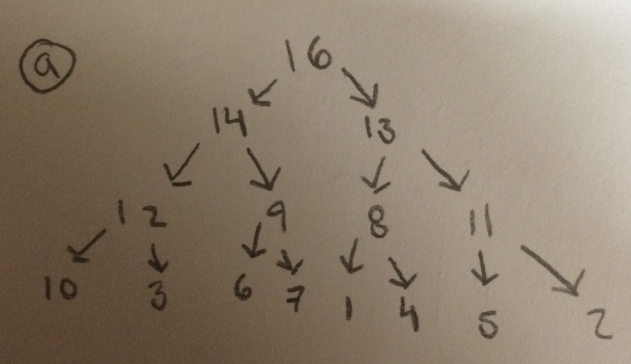 a
16
14 13
12 9 8 11
10 3 6 7 1 4 5 2